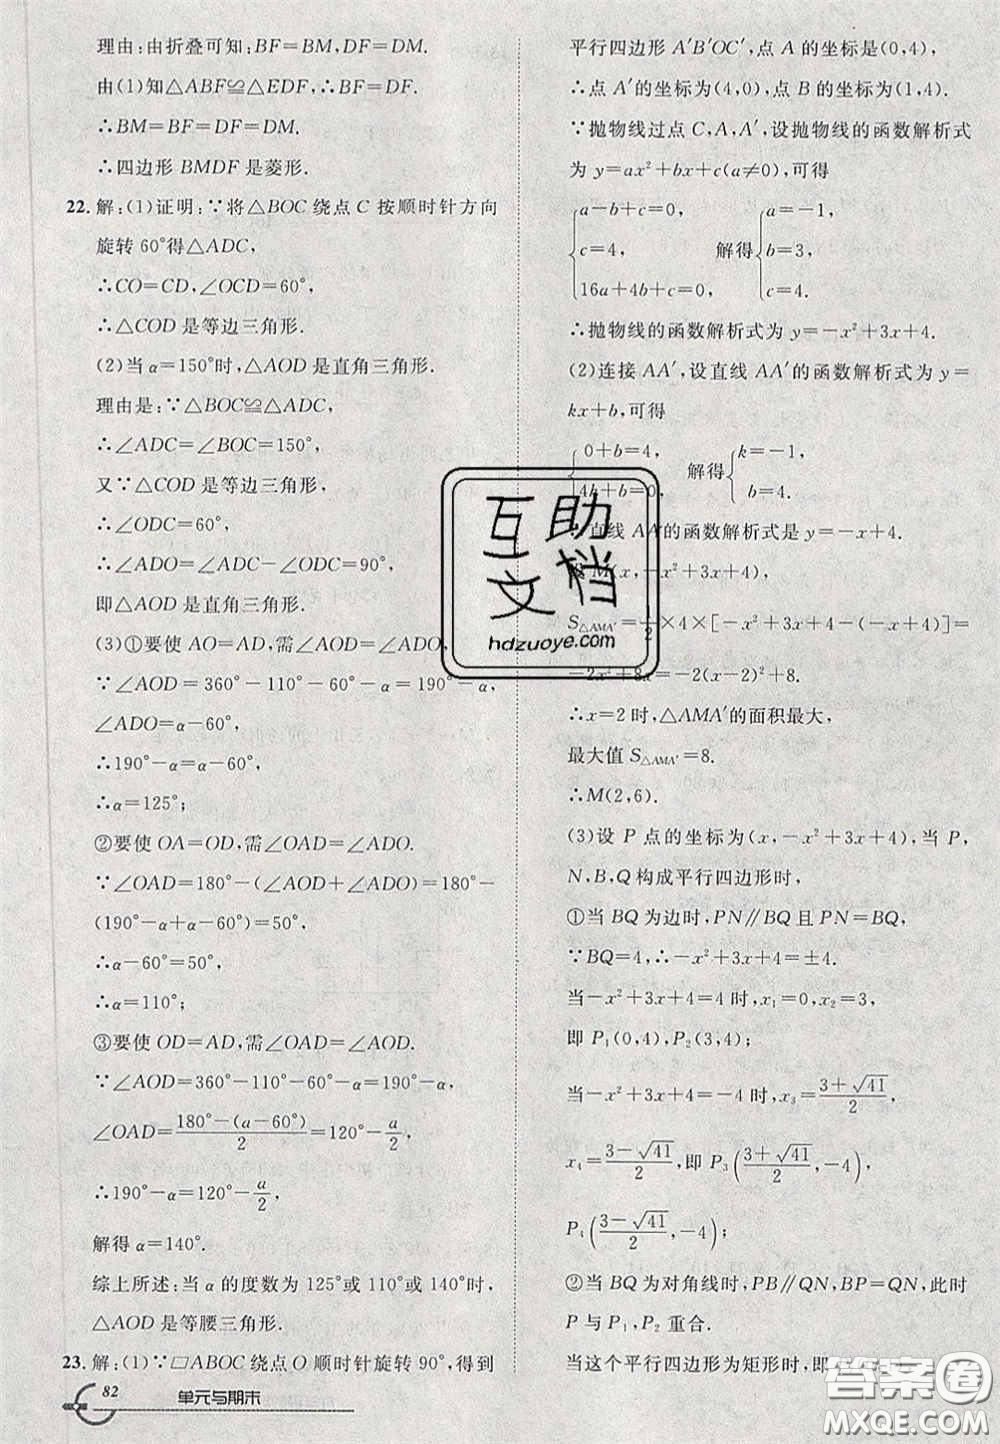 理由:由折叠可知:BF=BM,DF=DM.
由(1)知△ABF≌△EDF,∴BF=DF.
∴BM=BF=DF=DM.
∴四边形 BMDF 是菱形.
22. 解:(1)证明:∵将△BOC 绕点 C 按顺时针方向
旋转 60°得△ADC,
∴CO=CD,∠OCD=60°,
∴△COD 是等边三角形.
(2)当 α=150°时,△AOD 是直角三角形.
理由是:∵△BOC≌△ADC,
∴∠ADC=∠BOC=150°,
又∵△COD 是等边三角形,
∴∠ODC=60°,
∴∠ADO=∠ADC-∠ODC=90°,
即△AOD 是直角三角形.
(3)①要使 AO=AD,需∠AOD=∠ADO,
∵∠AOD=360°-110°-60°-α=190°-α,
∠ADO=α-60°,
∴190°-α=α-60°,
∴α=125°;
②要使 OA=OD,需∠OAD=∠ADO.
∵∠OAD=180°-(∠AOD+∠ADO)=180°-
(190°-α+α-60°)=50°,
∴α-60°=50°,
∴α=110°;
③要使 OD=AD,需∠OAD=∠AOD.
∵∠AOD=360°-110°-60°-α=190°-α,
∠OAD=\frac{180°-(α-60°)}{2}=120°-\frac{α}{2},
∴190°-α=120°-\frac{α}{2},
解得 α=140°.
综上所述:当 α 的度数为 125°或 110°或 140°时,
△AOD 是等腰三角形.
23. 解:(1)∵□ABOC 绕点 O 顺时针旋转 90°,得到
82 单元与期末
平行四边形 A′B′OC′,点 A 的坐标是(0,4),
∴点 A′的坐标为(4,0),点 B 的坐标为(1,4).
∵抛物线过点 C,A,A′,设抛物线的函数解析式
为 y=ax²+bx+c(a≠0),可得
{a-b+c=0, c=4, 16a+4b+c=0, 解得{a=-1, b=3, c=4.
∴抛物线的函数解析式为 y=-x²+3x+4.
(2)连接 AA′,设直线 AA′的函数解析式为 y=
kx+b,可得
{0+b=4, 4k+b=0, 解得{k=-1, b=4.
直线 AA′的函数解析式是 y=-x+4.
M(x,-x²+3x+4),
S△AMA′=\frac{1}{2}×4×[-x²+3x+4-(-x+4)]=
-2x²+8x=-2(x-2)²+8.
∴x=2 时,△AMA′的面积最大,
最大值 S△AMA′=8.
∴M(2,6).
(3)设 P 点的坐标为(x,-x²+3x+4),当 P,
N,B,Q 构成平行四边形时,
①当 BQ 为边时,PN∥BQ 且 PN=BQ,
∵BQ=4,∴-x²+3x+4=±4.
当-x²+3x+4=4 时,x₁=0,x₂=3,
即 P₁(0,4),P₂(3,4);
当-x²+3x+4=-4 时,x₃=\frac{3+√41}{2},
x₄=\frac{3-√41}{2},即 P₃(\frac{3+√41}{2},-4),
P₄(\frac{3-√41}{2},-4);
②当 BQ 为对角线时,PB∥QN,BP=QN,此时
P 与 P₁,P₂ 重合.
当这个平行四边形为矩形时,即
互助
文档
hdzuoye.com
答案圈
MXQE.COM